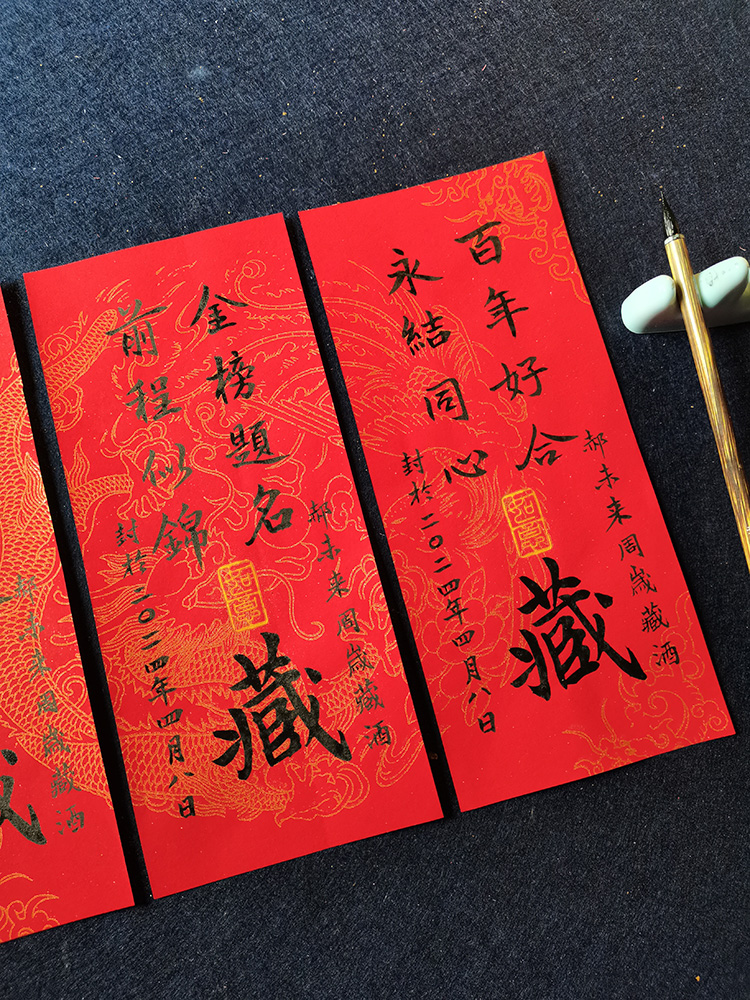 百年好合
永结同心
郝未来周岁藏酒
藏
封於二〇二四年四月八日
如意
金榜題名
前程似錦
郝未来周岁藏酒
藏
封於二〇二四年四月八日
如意
郝未来周岁藏酒
藏